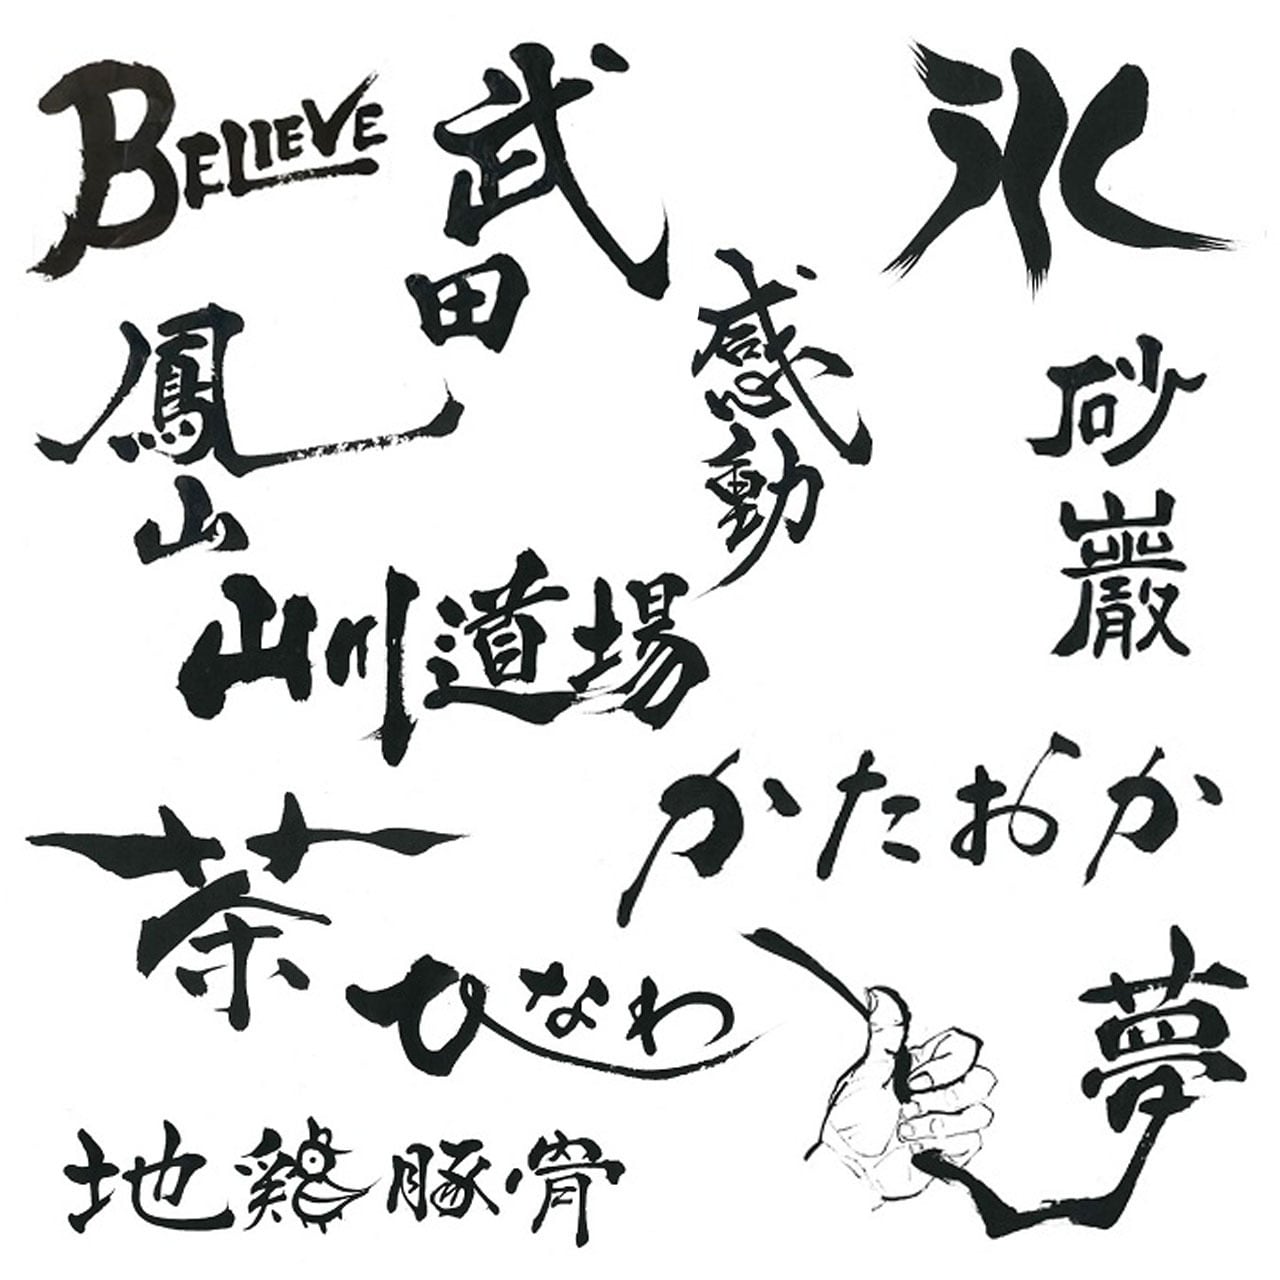 BELIEVE
武田
氷
鳳山
感動
砂巖
山川道場
かたおか
茶
ひなわ
夢
地鶏豚骨